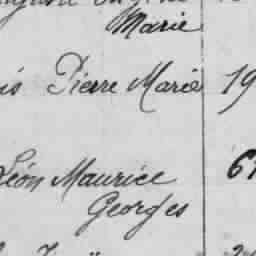 Marie
Pierre Marie 19
Léon Maurice 61
Georges